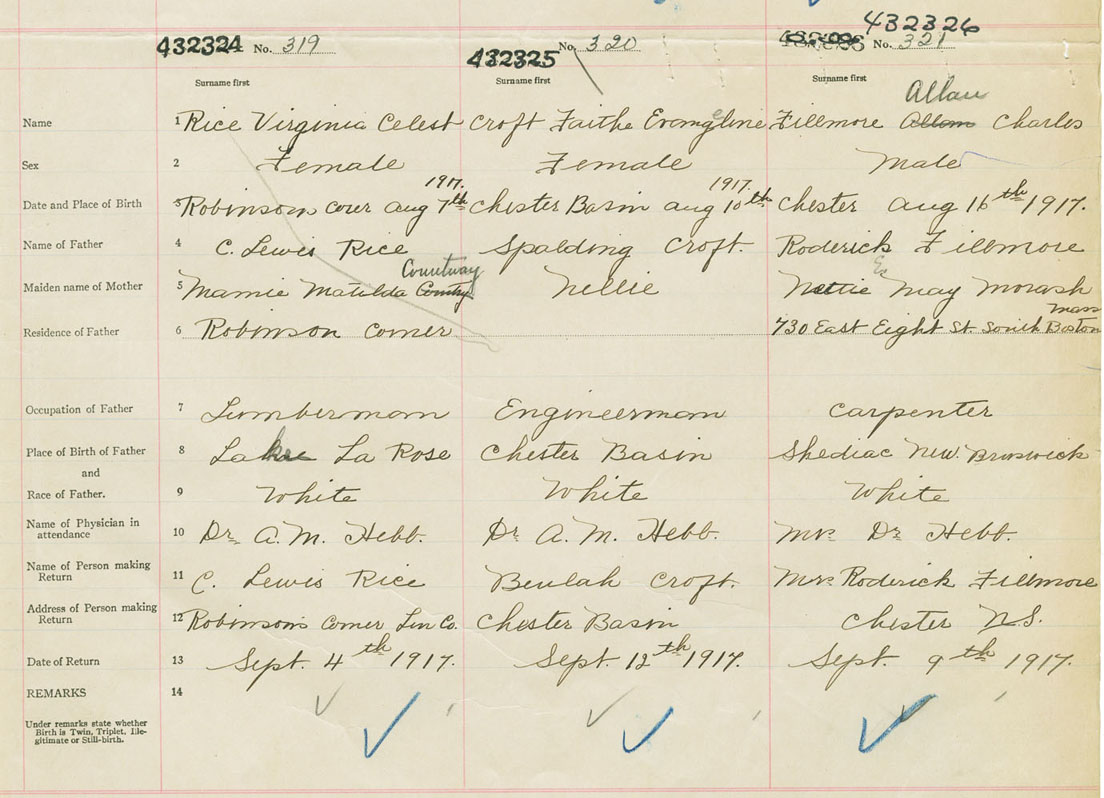 432324 No. 319
432325 No. 320
432326 No. 321
Surname first Surname first Surname first
Allan
Name 1 Rice Virginia Celest Croft Faithe Evangeline Fillmore Allan Charles
Sex 2 Female Female Male
1917. 1917.
Date and Place of Birth 3 Robinson corer Aug 7th Chester Basin Aug 10th Chester Aug 16th 1917.
Name of Father 4 C. Lewis Rice Spalding Croft. Roderick Fillmore
Countway
Maiden name of Mother 5 Mamie Matilda Nellie May Morash
Mass
Residence of Father 6 Robinson Corner 730 East Eight St. South Boston
Occupation of Father 7 Lumberman Engineerman Carpenter
Place of Birth of Father 8 La La Rose Chester Basin Shediac New Brunswick
and
Race of Father. 9 White White White
Name of Physician in
attendance 10 Dr. A. M. Hebb. Dr A. M. Hebb. Mr. Dr Hebb.
Name of Person making
Return 11 C. Lewis Rice Beulah Croft. Mrs. Roderick Fillmore
Address of Person making
Return 12 Robinson's Corner Lun Co. Chester Basin Chester N.S.
Date of Return 13 Sept. 4th 1917. Sept. 12th 1917. Sept. 9th 1917.
REMARKS 14
Under remarks state whether
Birth is Twin, Triplet, Ille-
gitimate or Still-birth.